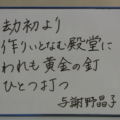 劫初より
作りいとなむ殿堂に
われも黄金の釘
ひとつ打つ
与謝野晶子